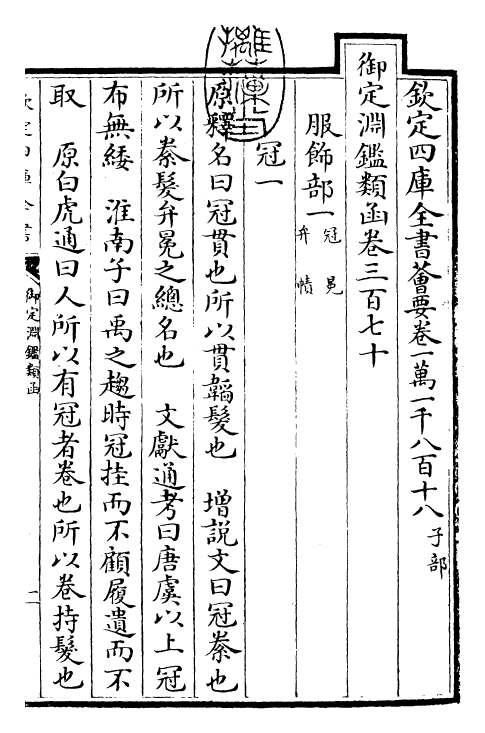 欽定四庫全書薈要卷一萬一千八百十八 子部
御定淵鑑類函卷三百七十
服飾部一 冠 冕 弁 幘
冠一
原釋名曰冠貫也所以貫韜髮也 增說文曰冠絭也
所以絭髮弁冕之總名也 文獻通考曰唐虞以上冠
布無緌 淮南子曰禹之趨時冠挂而不顧履遺而不
取 原白虎通曰人所以有冠者卷也所以卷持髮也
御定淵鑑類函